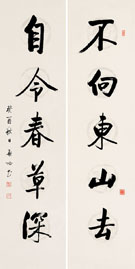 不向東山去
自令春草深